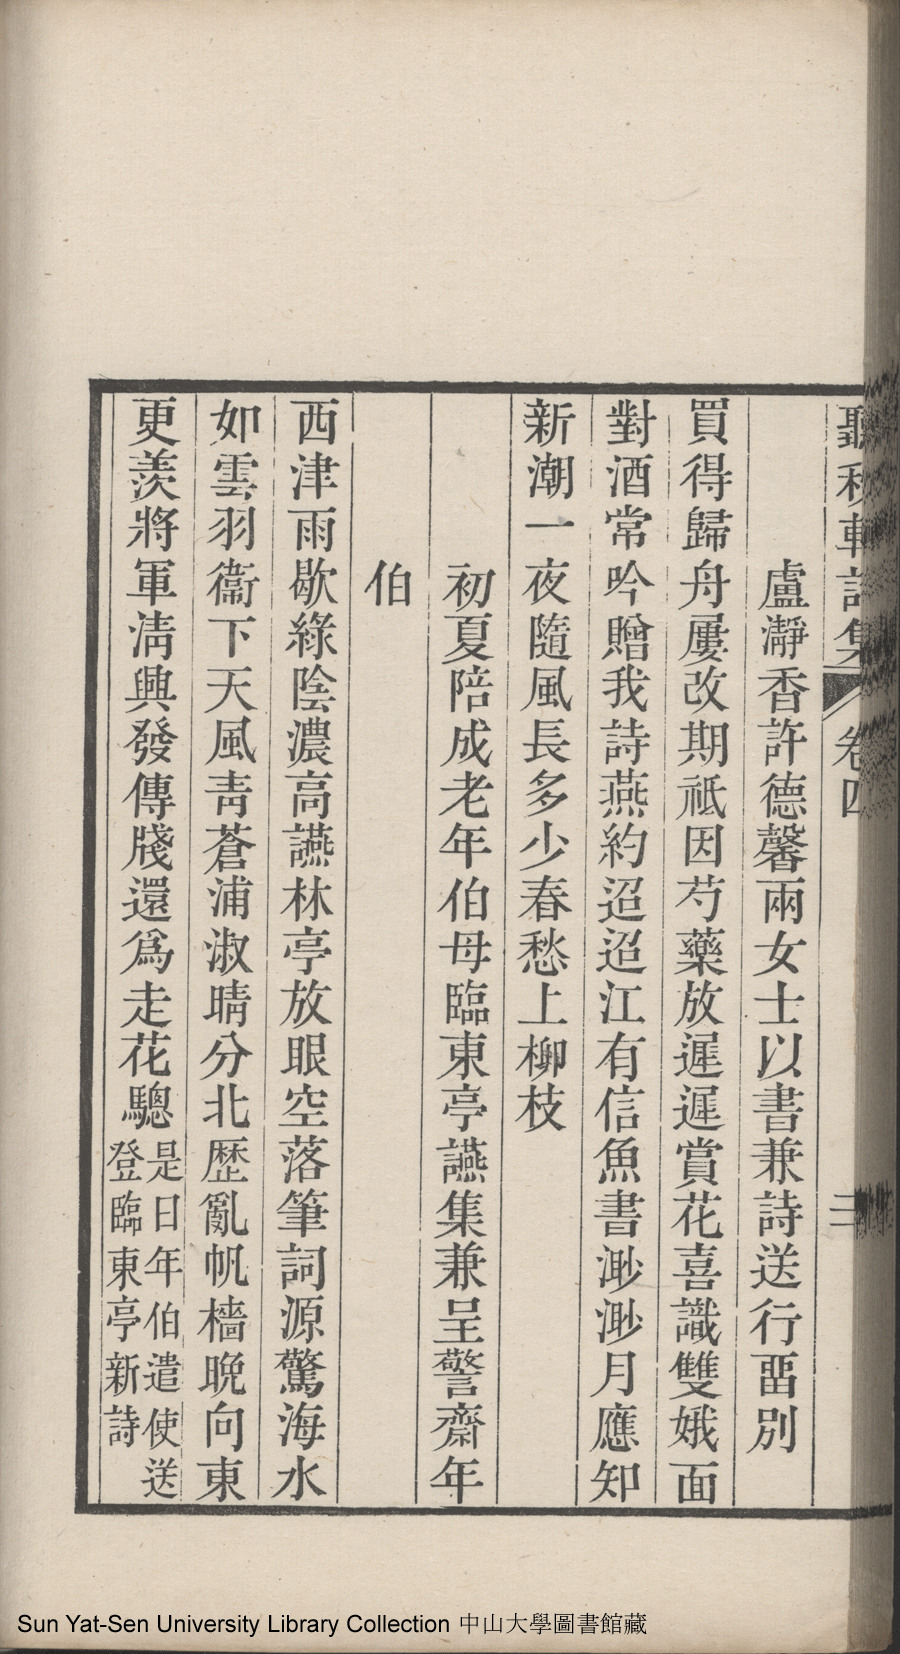 聽秋軒詩集 卷四 二
盧瀞香許德馨兩女士以書兼詩送行畱別
買得歸舟屢改期祗因芍藥放遲遲賞花喜識雙娥面
對酒常吟贈我詩燕約迢迢江有信魚書渺渺月應知
新潮一夜隨風長多少春愁上柳枝
初夏陪成老年伯母臨東亭讌集兼呈警齋年
伯
西津雨歇綠陰濃高讌林亭放眼空落筆詞源驚海水
如雲羽衞下天風靑蒼浦溆晴分北歷亂帆檣晚向東
更羨將軍淸興發傳牋還爲走花驄是日年伯遣使送
登臨東亭新詩
Sun Yat-Sen University Library Collection 中山大學圖書館藏